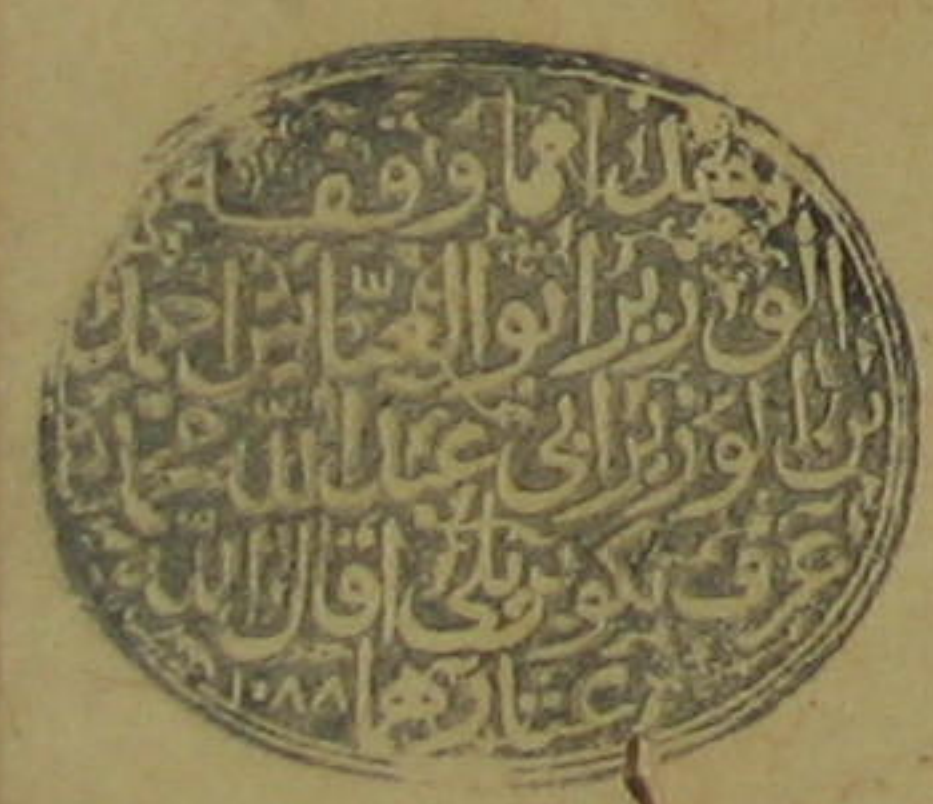 هذا مما وقفه
الوزير ابو العباس احمد
بن الوزير ابي عبد الله محمد
عرف بكوپريلى اقال الله
عثارهما ١٠٨٨